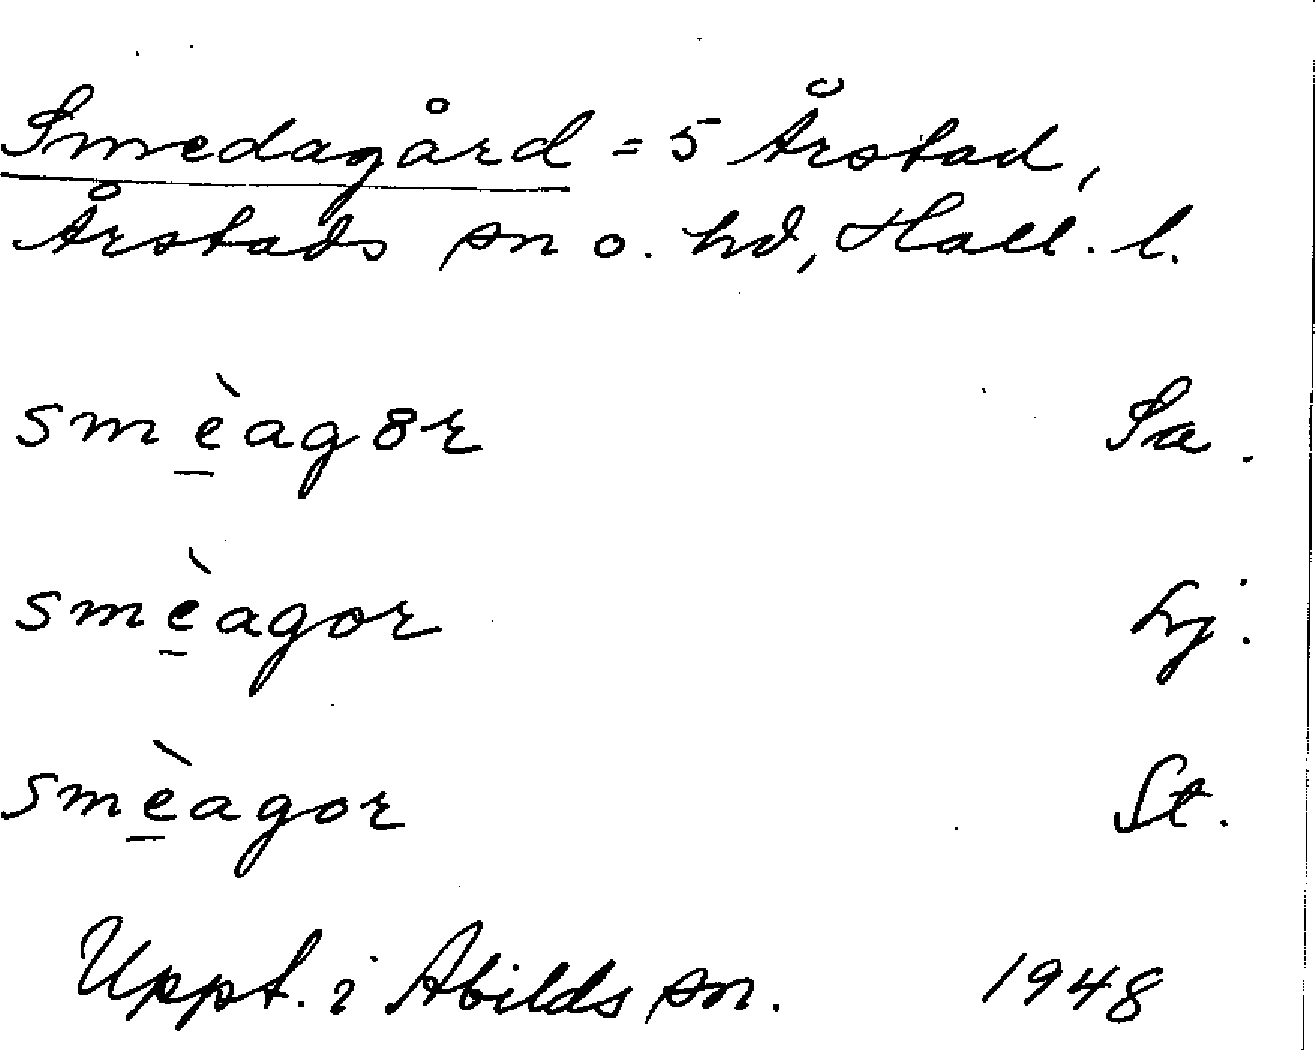 Smedagård = 5 Årstad,
Årstads sn o. hd, Hall. l.
smè̲agȣr Sa.
smè̲agor Hj.
smè̲agor St.
Uppt. i Abilds sn. 1948